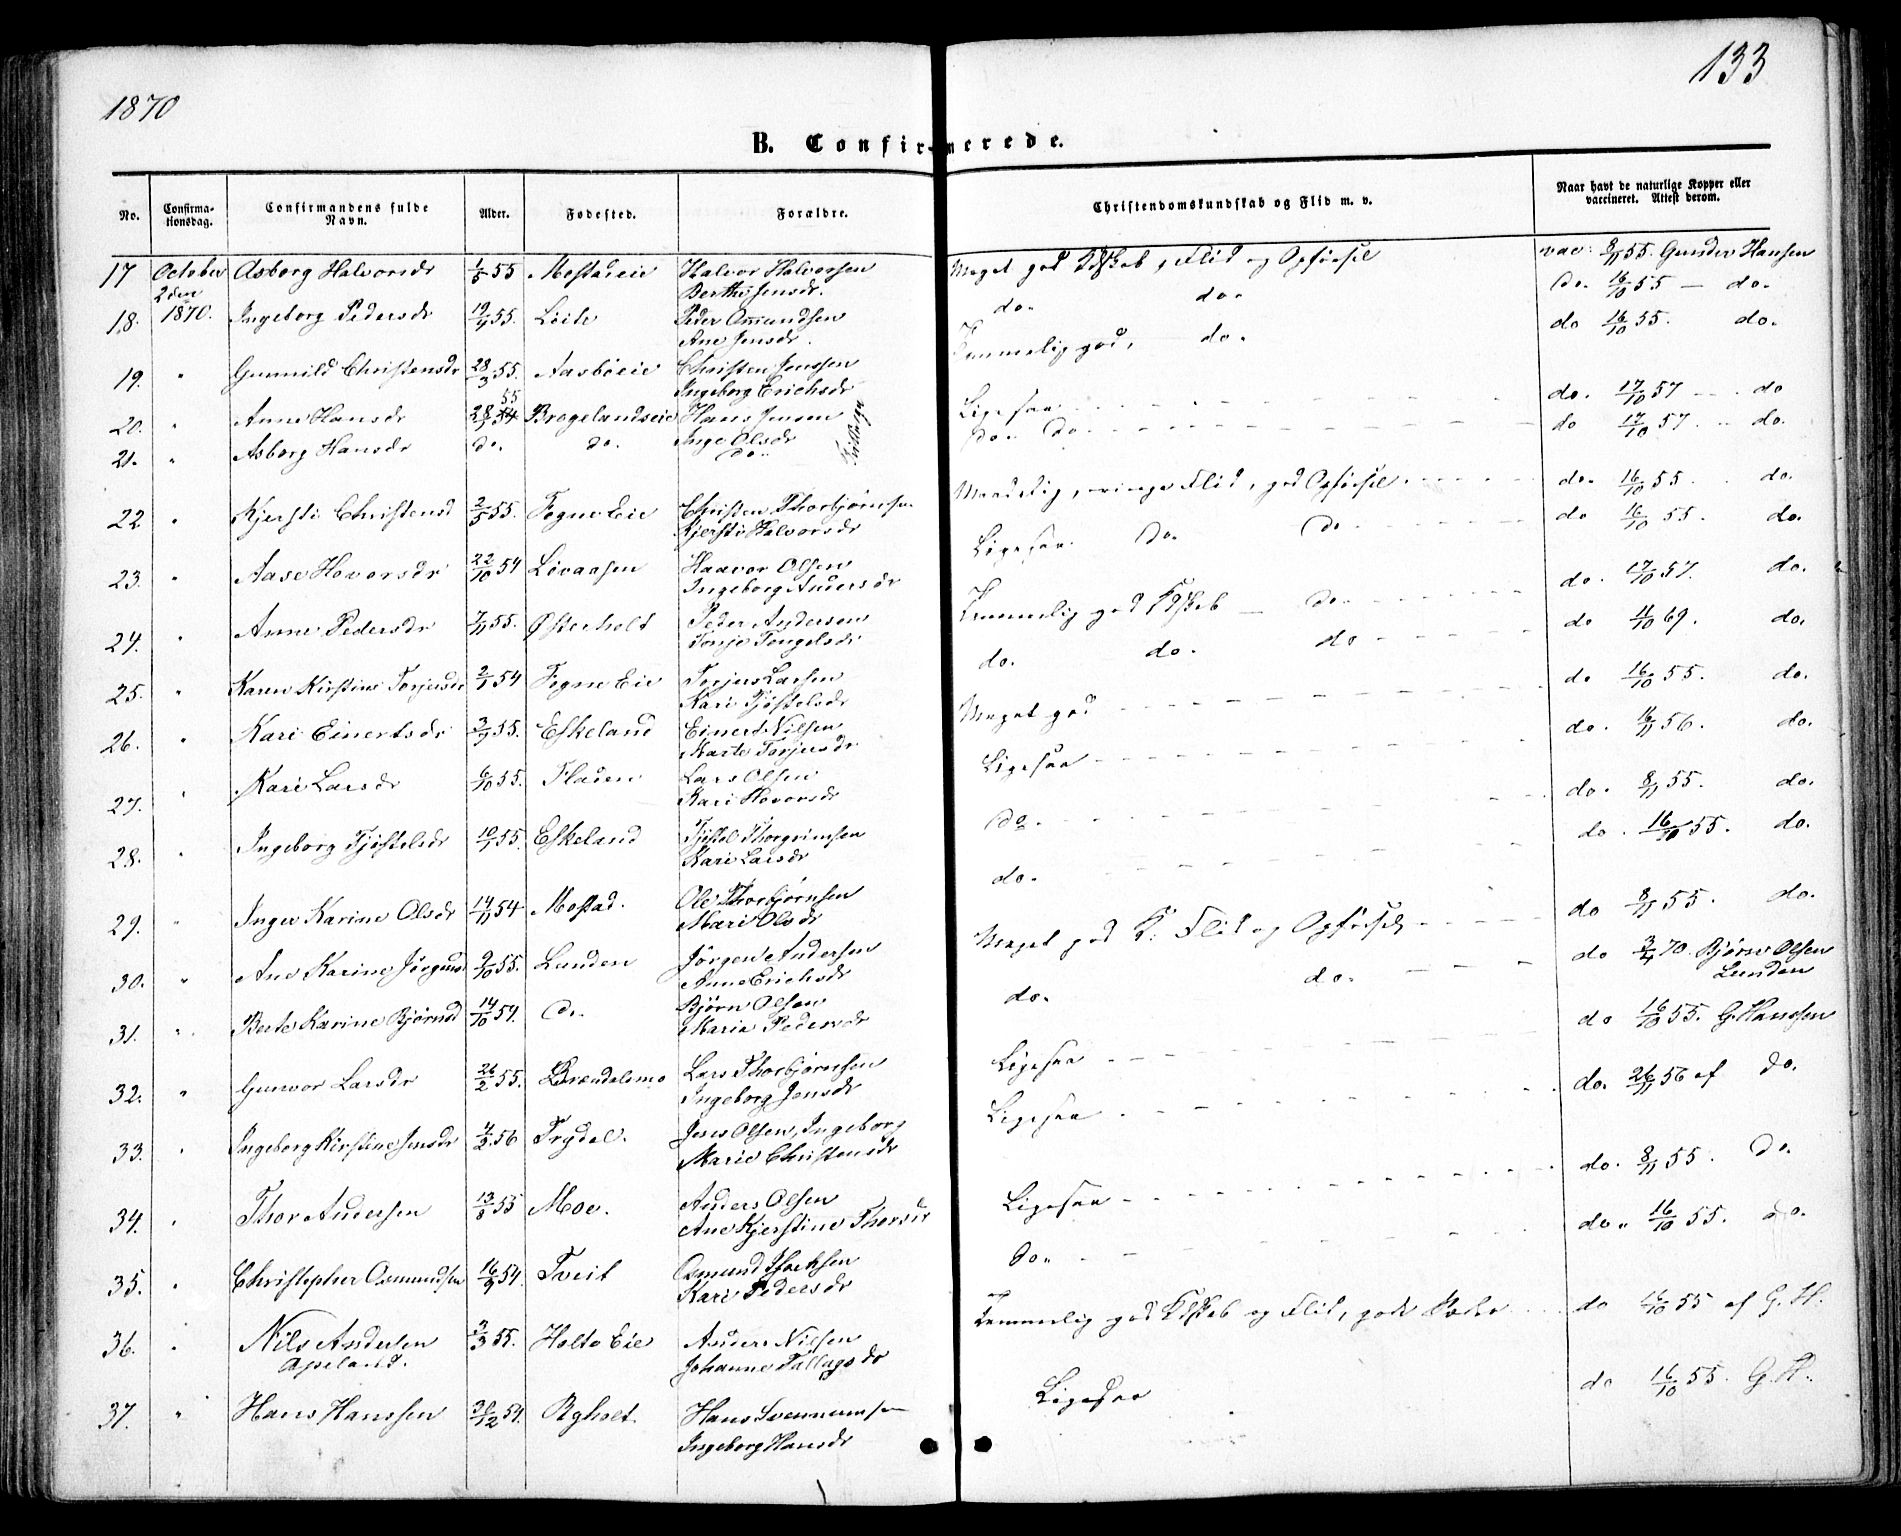 133
1870
B. Confirmerede.
No.
Confirma-
tionsdag.
Confirmandens fulde
Navn.
Alder.
Fødested.
Forældre.
Christendomskundskab og Flid m. v.
Naar havt de naturlige Kopper eller
vaccineret. Attest derom.
17 October Asborg Halvorsdr 1/5 55 Mostadeie Halvor Halvorsen Meget god Kdskab, Flid og Opførsel vac: 8/11 55. Gunder Hansen
2den Berthe Jensdr.
18. 1870. Ingeborg Pedersdr 19/4 55. Løite Peder Omundsen do. do. Do. 16/10 55 — do.
Ane Jensdr.
19. " Gunnild Christensdr 28/3 55. Aasbøeie Christen Jenssen Temmelig god, do. do 16/10 55. do.
Ingeborg Erichsdr
20. " Anne Hansdr 28/1 54 55 Brogelandseie Hans Jensen Ligesaa do. 17/10 57 do
Inge Olsdr
21. " Asborg Hansdr do. do. do. do. do. do 17/10 57 do.
22 " Kjersti Christensd 2/5 55. Fogne Eie Christen Thorbjørnsen Maadelig, ringe Flid, god Opførsel do. 16/10 55 do.
Kjersti Halvorsdr
23. " Aase Hovorsdr 22/10 54 Løvaasen Haavor Olsen Ligesaa do. do do 16/10 55. do.
Ingeborg Andersdr
24. " Anne Pedersdr 7/11 55. Østerholt Peder Andersen Temmelig god Kdskab — do. do. 17/10 57. do.
Tonje Tengelsdr
25. " Karen Kirstine Torjusdr 2/1 54 Fogne Eie Torjus Larsen do. do. do do 4/10 69. do.
Kari Tjøstelsdr
26. " Kari Einertsdr 3/9 55. Eskeland Einert Nilsen Meget god do 16/10 55. do.
Marte Torjusdr
27. " Kari Larsdr 6/10 55. Fladen Lars Olsen Ligesaa do. 16/11 56. do.
Kari Hovorsdr
28. " Ingeborg Tjøstelsdr 10/1 55. Eskeland Tjøstel Thorgrimsen do. do. 8/11 55. do.
Kari Larsdr
29. " Inger Karine Olsdr 14/11 54 Mostad. Ole Thorbjørnsen do. do. 16/10 55. do.
Mari Olsdr
30. " Ane Karine Jørgensd 9/10 55. Lunden Jörgen Andersen Meget god K. Flid og Opførsel do 8/11 55. do.
Anne Erichsdr
31. " Berte Karine Bjørnsd 14/10 54. do. Bjørn Olsen do. do. do 3/4 70. Bjørn Olsen
Maria Pedersdr Lunden
32. " Gunvor Larsdr 26/2 55. Brændalsmo Lars Thorbjørnsen Ligesaa do 16/10 55. G. Hanssen
Ingeborg Jensdr
33. " Ingeborg Kirstine Jensdr 4/2 56 Frydal. Jens Olsen, Ingeborg Ligesaa do. 26/11 56 af do.
Marie Christensdr
34. " Thor Andersen 13/8 55 Moe. Anders Olsen Ligesaa do. 8/11 55. do.
Ane Kjerstine Thorsdr
35. " Christopher Osmundsen 16/9 54. Tveit Osmund Isaksen do. do. 16/10 55. do.
Kari Pedersdr
36. " Nils Andersen 3/3 55. Holte Eie Anders Nilsen Temmelig god Kdskab og Flid, gode Sæder do 16/10 55 af G. H.
Apeland. Johanne Tallagsdr
37. " Hans Hanssen 31/12 54. Ryholt Hans Svennumsen Ligesaa do 16/10 55. G. H.
Ingeborg Hansdr